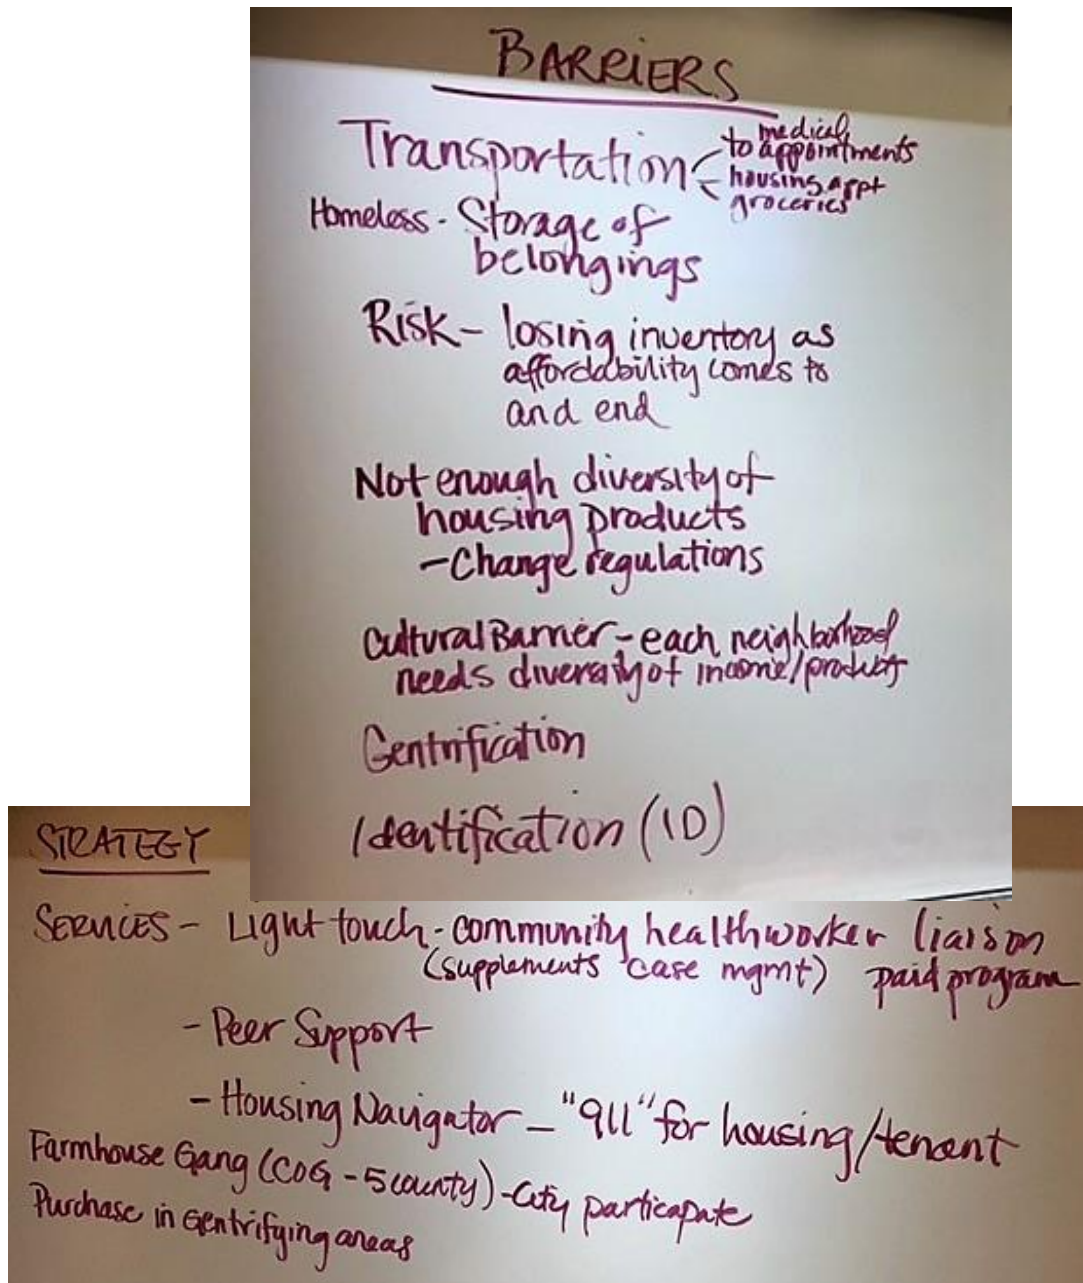 BARRIERS
Transportation < to medical appointments
housing appt
groceries
Homeless - Storage of
belongings
Risk - losing inventory as
affordability comes to
and end
Not enough diversity of
housing products
- Change regulations
Cultural Barrier - each neighborhood
needs diversity of income/products
Gentrification
Identification (ID)
STRATEGY
SERVICES - Light touch - community healthworker liaison
(supplements case mgmt) paid program
- Peer Support
- Housing Navigator - "911" for housing/tenant
Farmhouse Gang (COG - 5 county) - City particapate
Purchase in Gentrifying areas